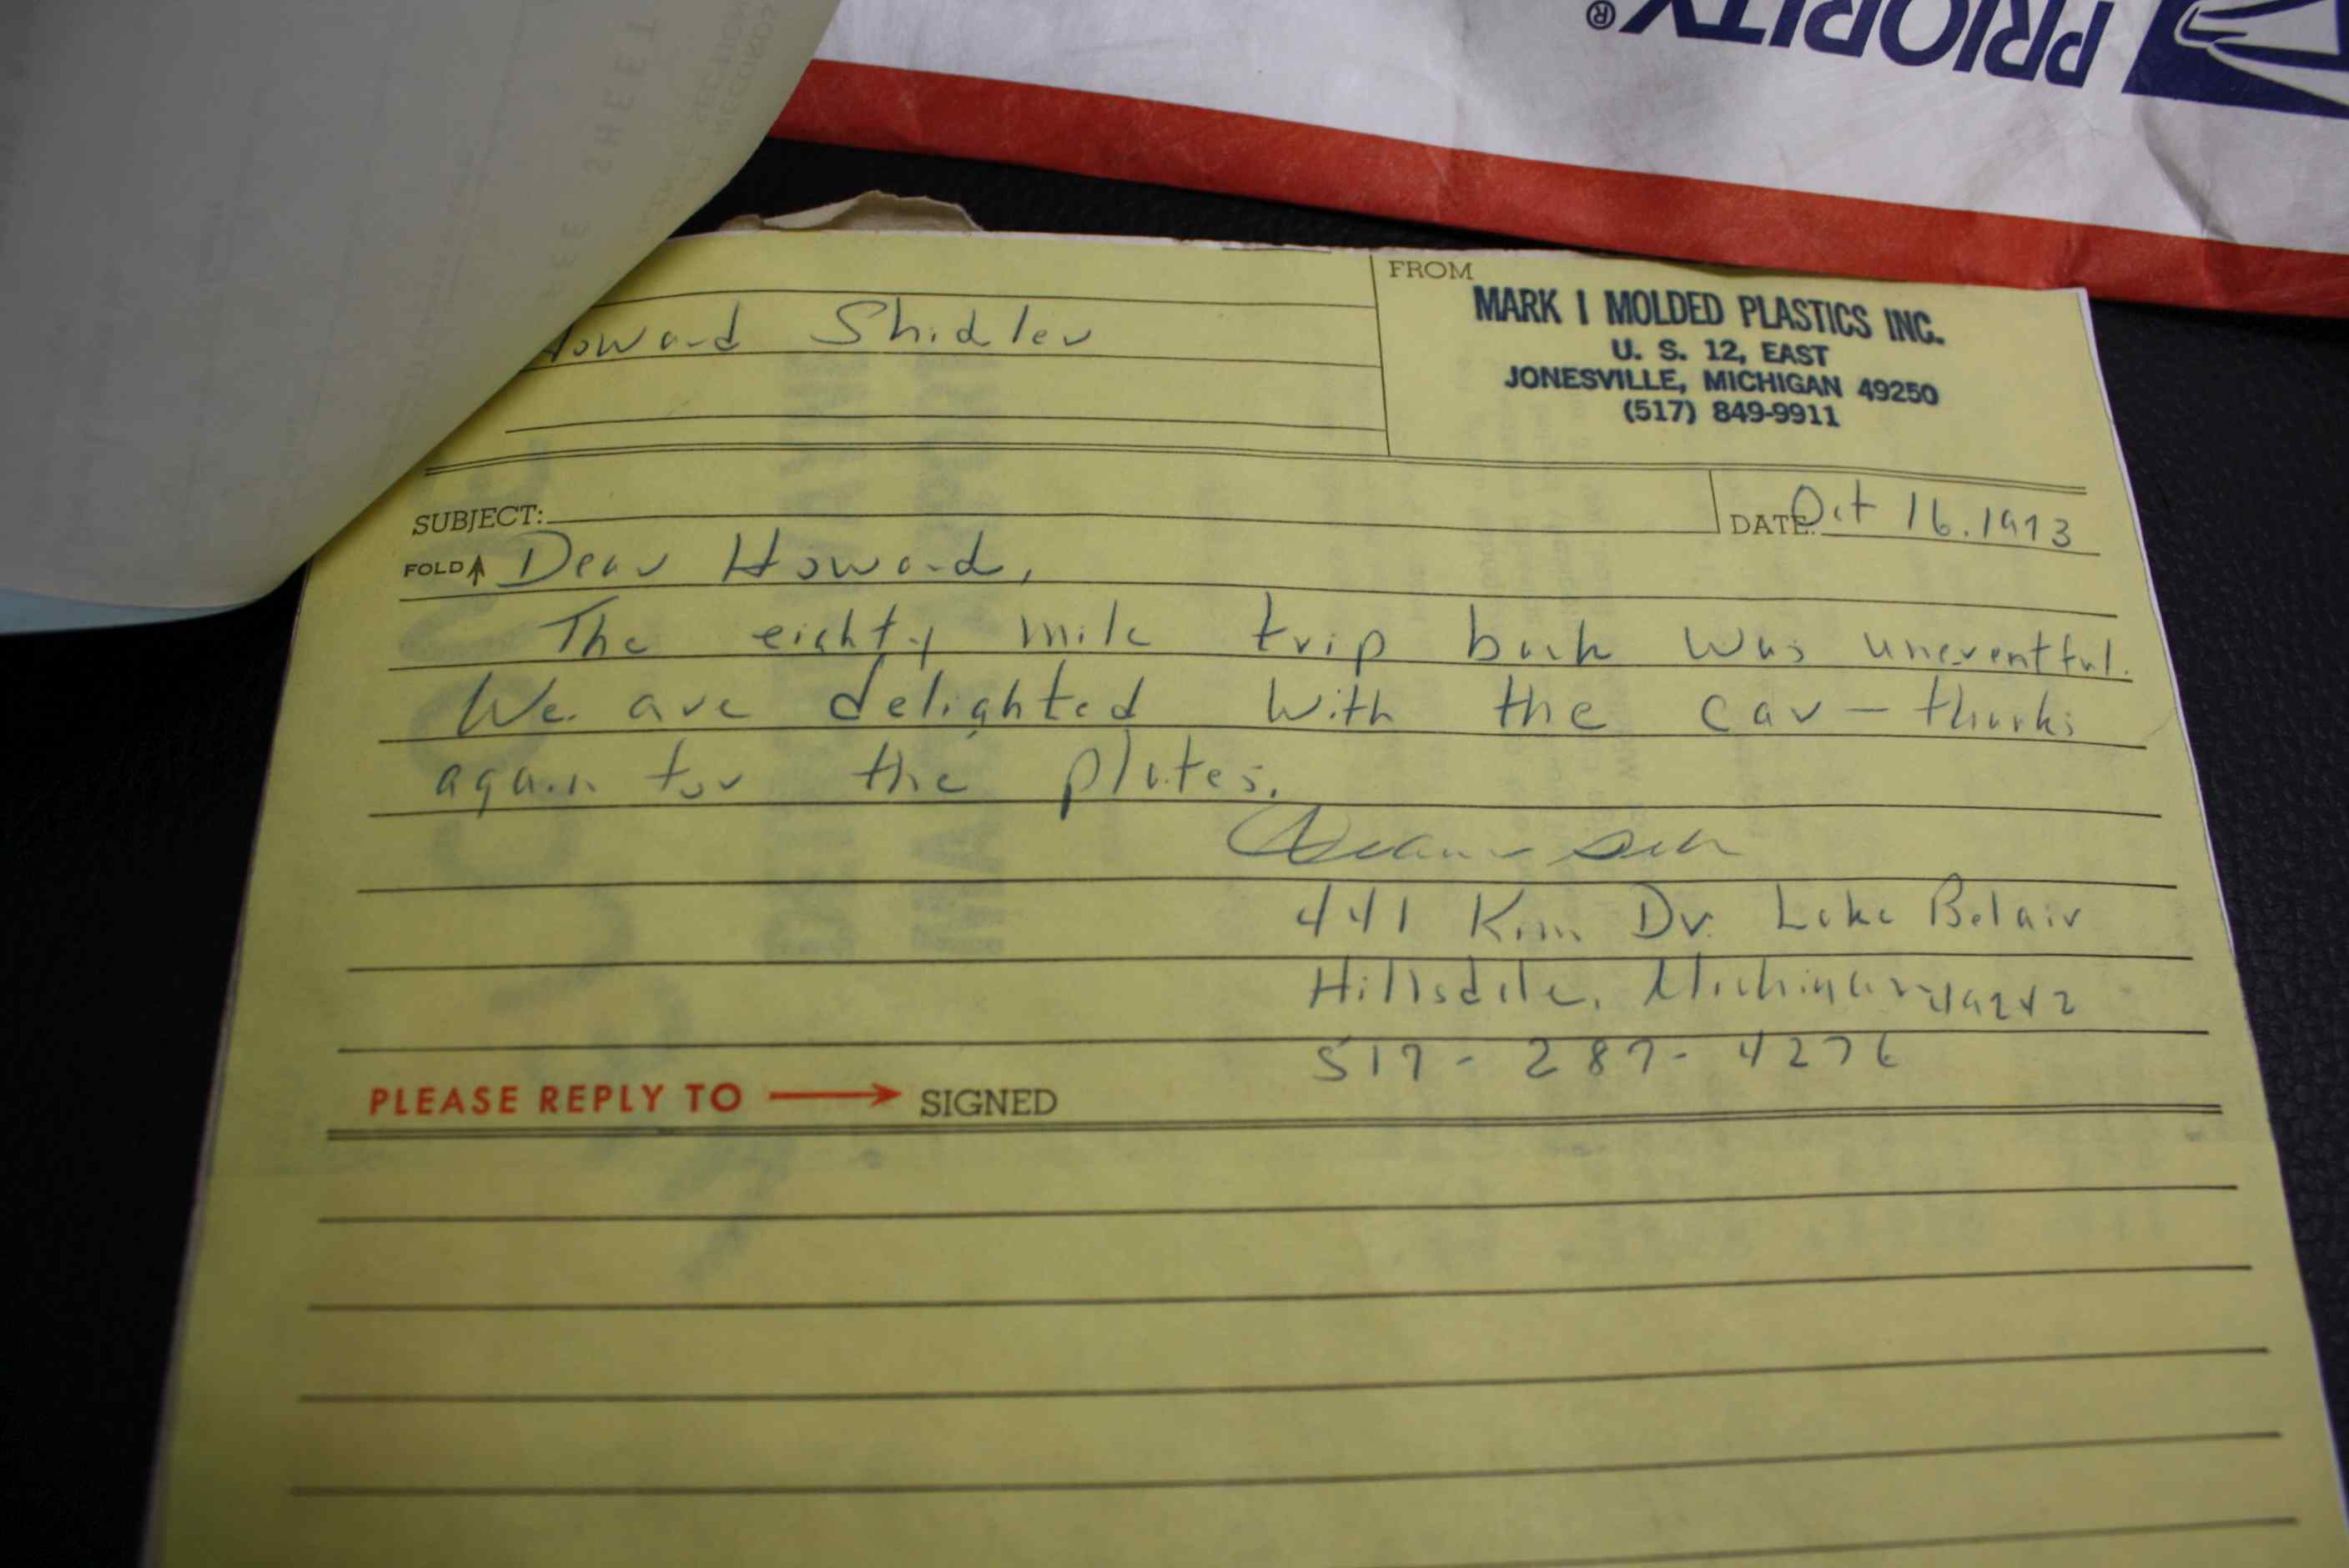 PRIORITY®
FEE SHEET
FROM
MARK I MOLDED PLASTICS INC.
U. S. 12, EAST
JONESVILLE, MICHIGAN 49250
(517) 849-9911
Howard Shidler
SUBJECT:
DATE: Oct 16. 1973
FOLD Dear Howard,
The eighty mile trip back was uneventful.
We are delighted with the car — thanks
again for the plates.
441 Kim Dr. Lake Belair
Hillsdale, Michigan 49242
517 - 287 - 4276
PLEASE REPLY TO → SIGNED